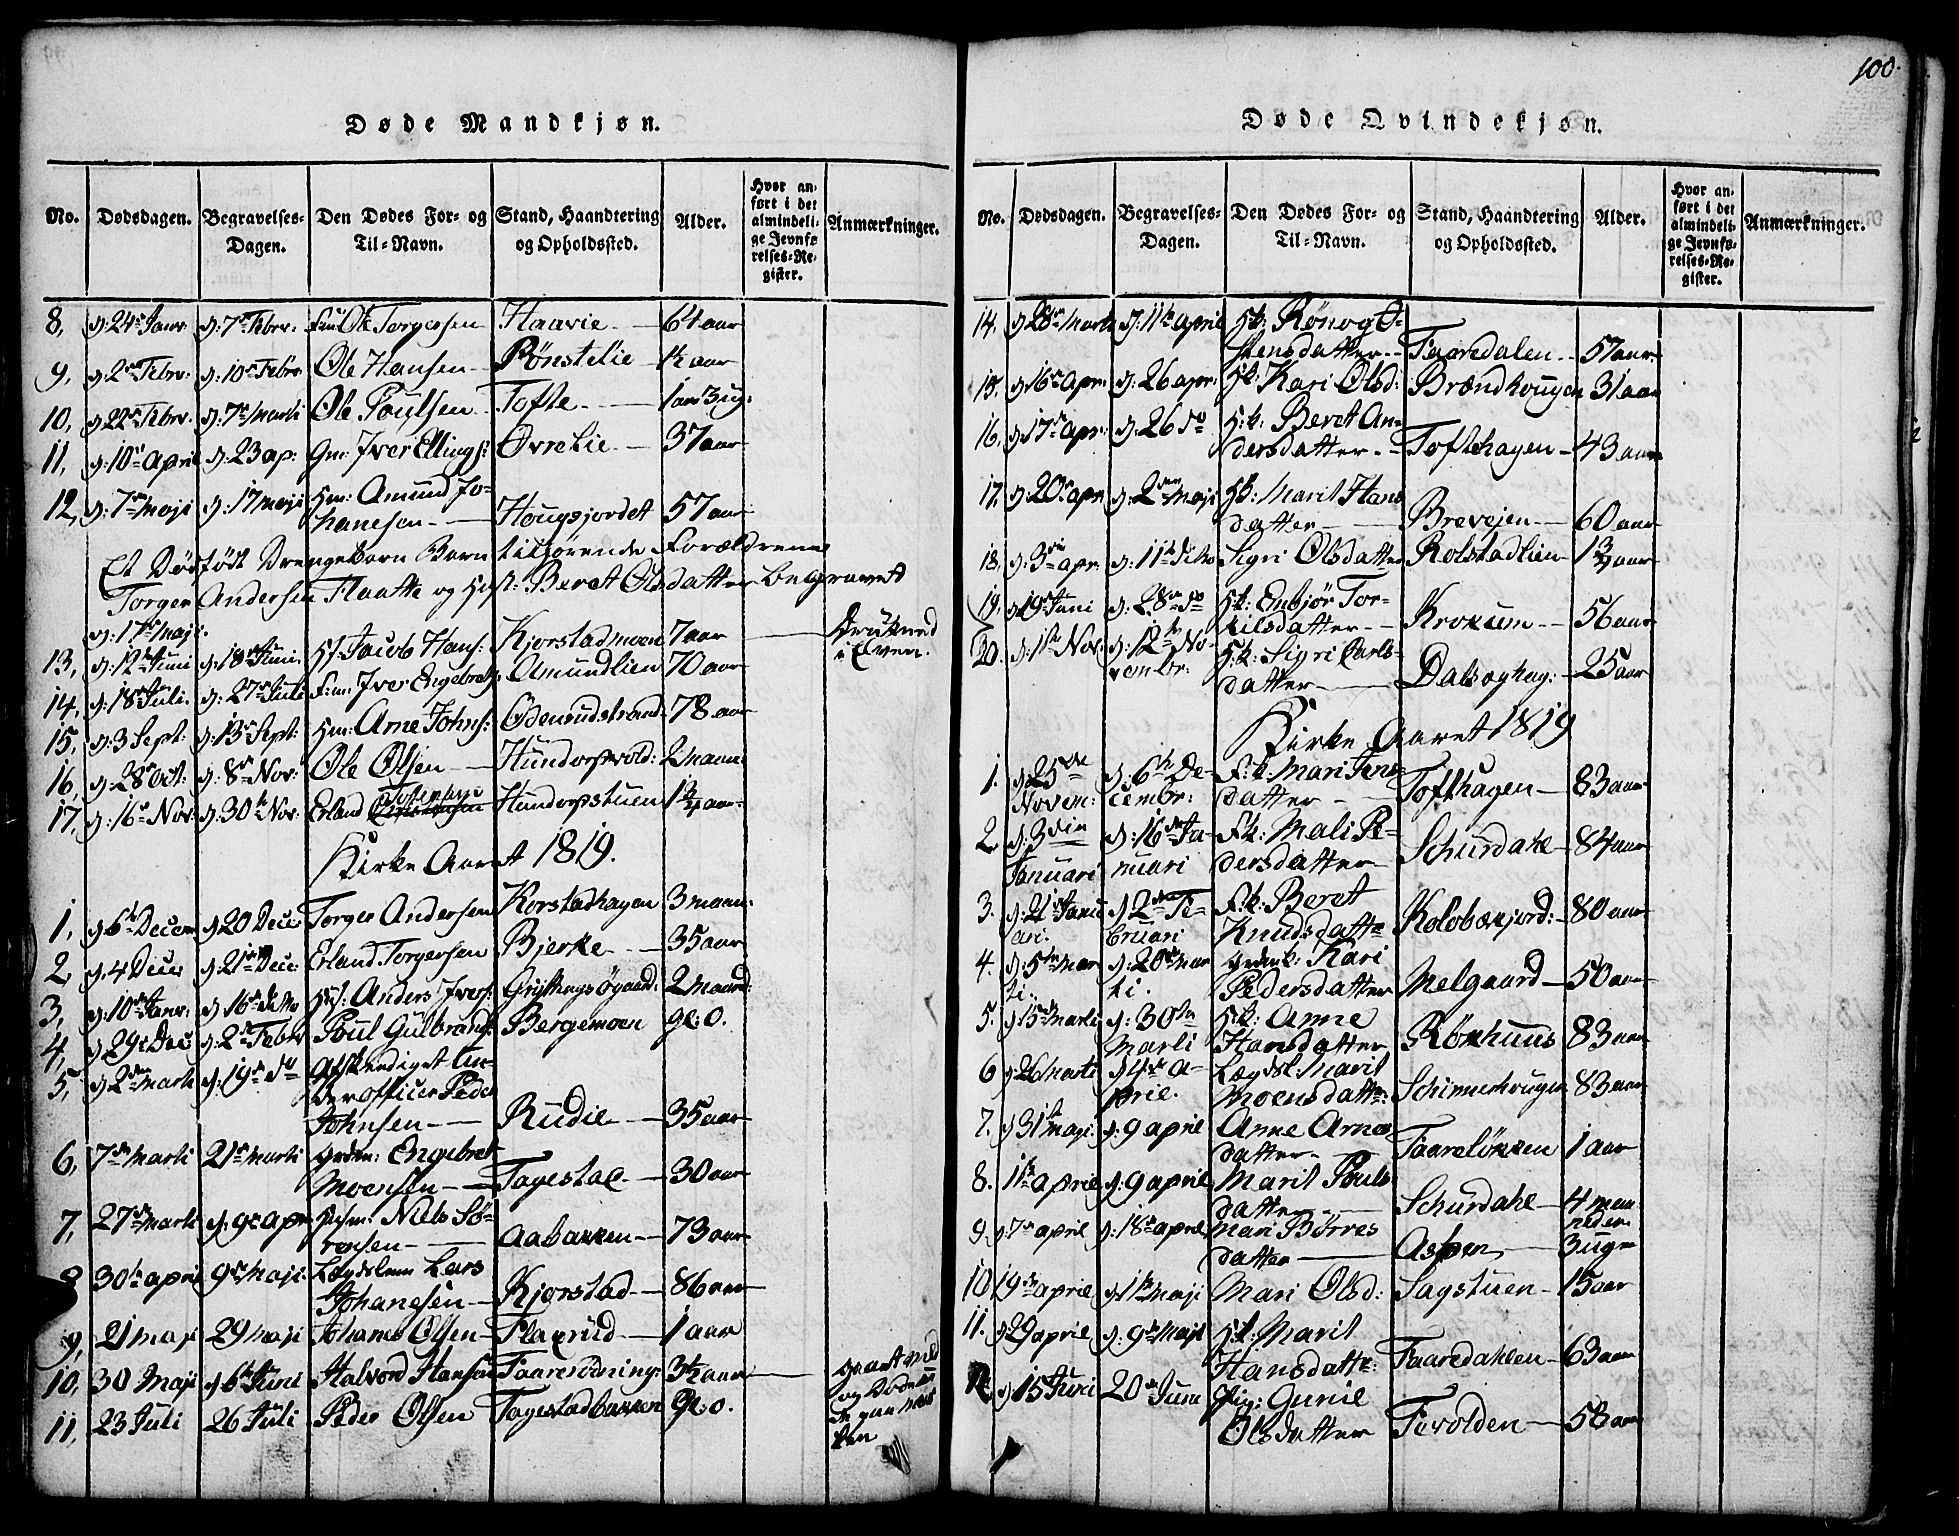 100.
Døde Mandkjøn.
No. Dødsdagen. Begravelses-Dagen. Den Dødes For- og Til-Navn. Stand, Haandtering og Opholdssted. Alder. Hvor anført i det almindelige Jevnførelses-Register. Anmærkninger.
8, d: 24de Janr d: 7de Febr: Ole Torgersen Haavie 64 aar
9, d: 2den Febr: d: 10de Febr Ole Hansen Rønstelie ½ aar
10, d 22de Febr. d: 7de Marti Ole Poulsen Tofte 1 aar 3 ug:
11, d: 10de April d: 23 ap: Gm: Iver Ellings: Øvrelie 37 aar
12, d: 7de Maji d: 17 Maji Hm: Amund Jo-
hanesen Hougsjordet 57 aar
Et Dødfødt Drengebarn Barn tilhørende Forældrene
Torger Andersen Flaatte og H Beret Olsdatter begravet
d: 17de Maji.
13, d: 12te Juni d: 18de Juni. Jacob Hans: Kjorstadmoen 7 aar Drukned
i Elven.
14, d: 18de Juli. d: 27de Juli Iver Engebretz: Amundlien 70 aar
15, d: 3 Sept: d: 13de Sept: Hm: Arne Johns: Ødemudstrand 78 aar
16, d: 28de Oct: d: 8de Nov: Ole Olsen Hundorfvold: 2 maan:
17, d: 16de Nov: d: 30te Nov: Erland Hundorpstuen 1¾ aar
Kirke Aaret 1819.
1, d 6te Decem d 20 Dece Torger Andersen Korstadhagen 3 maan:
2 d: 4 Dece d: 21de Dece: Erland Torgersen Bjerke 35 aar
3, d: 10de Janr: d 16de dito Anders Ivers: 2 maand:
4, d 29de Dec d: 2den Febr Poul Gulbrands: Bergemoen gl: 0.
5, d 2den Marti d: 19de do Afskediget Un-
derofficer Peder
Johnsen Rudie 35 aar
6, 7de Marti 21de Marti Engebret
Moensen Tagestad 30 aar
7, 27de Marti d: 9de Apr Niels Sø-
rensen Aabakken 73 aar
8 30te April 9de Maji Lægdslem Lars
Johanesen Kjorstad 86 aar
9, 21 Maji 29 Maji Johanes Olsen Flaxrud 1 aar
10, 30 Maji d 6te Juni Halvord Hansen 3½ aar
11, 23 Juli 26 Juli Peder Olsen Tagestadbakken gl: 0.
Døde Qvindekjøn.
No. Dødsdagen. Begravelses-Dagen. Den Dødes For- og Til-Navn. Stand, Haandtering og Opholdssted. Alder. Hvor anført i det almindelige Jevnførelses-Register. Anmærkninger.
14. d 28de Marti d: 11te April Hk: Rønog O-
stensdatter Faaredalen 57 aar
15, d 16de apr: d: 26 apr: Hk: Kari Olsd: Brændhougen 31 aar
16, d 17de apr: d: 26 do Hk: Beret An-
dersdatter Tofthagen 43 aar
17, d: 20de apr d: 2den Maji Hk: Marit Hans
datter Brevejen 60 aar
18, d: 3die apr: d: 11te dito Sigri Olsdatter Rolstadlien 1¾ aar
19, d 19de Juni d: 28de do Hk: Embjør Tor-
kilsdatter Krokum 56 aar
20. d: 1ste Nov: d: 12te No-
vembr: Hk: Sigri Carls-
datter Dalsæghag: 25 aar
Kirke Aaret 1819
1. d 25de
Novem: d: 6te De-
cembr: F:k: Mari Jens
datter Tofthagen 83 aar
2 d: 3die
Januari d: 16de Ja-
nuari Fk: Mali Pe-
dersdatter Schurdahl 84 aar
3. d: 21de Janu
ari. d 2den Fe-
bruari F:k: Beret
Knudsdatte Kolobækjord: 80 aar
4. d: 5te Mar
ti. d: 20de Mar
ti. Kari
Pedersdatter Melgaard 50 aar
5. d 15de Marti d: 30te
Marti Hk: Anne
Hansdatter Rønhuus 83 aar
6 d 26 Marti d 4de A-
prie. Lægdsl: Marit
Moensdatte: 83 aar
7. d 31te d: 9 april Anne Arnes
datter Faareløkken 1 aar
8. 1ste aprie d: 9 aprie Marit Pouls
datter Schurdahl 4 maa
neder
9. d 7de aprie d: 18de aprie Mari Børres
datter Aspen 3 uger
10 19de aprie d 1ste Maji Mari Olsd: Sagstuen 15 aar
11. d 29 aprie d: 9de Maji Hk: Marit
Hansdatte: Faaredahlen 63 aar
12 d 15 Juni 20de Juni Pig: Gunil
Olsdatter Fevolden 58 aar